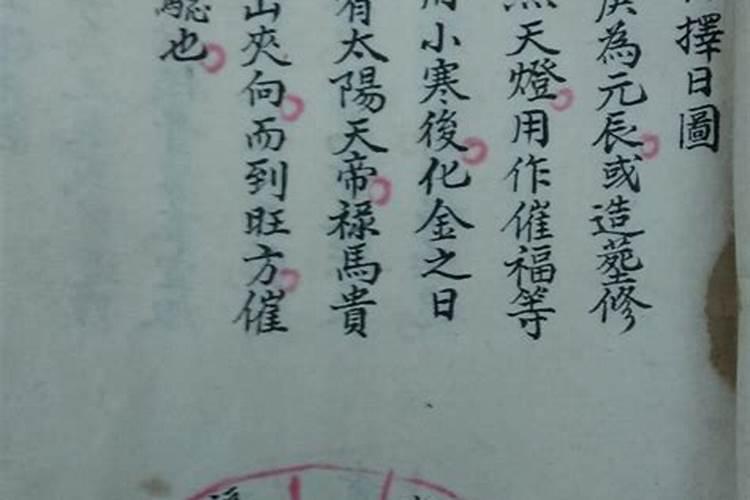 擇日圖
為元辰或造塟修
天燈用作催福等
小寒後化金之日
有太陽天帝祿馬貴
山夾向而到旺方催
驗也